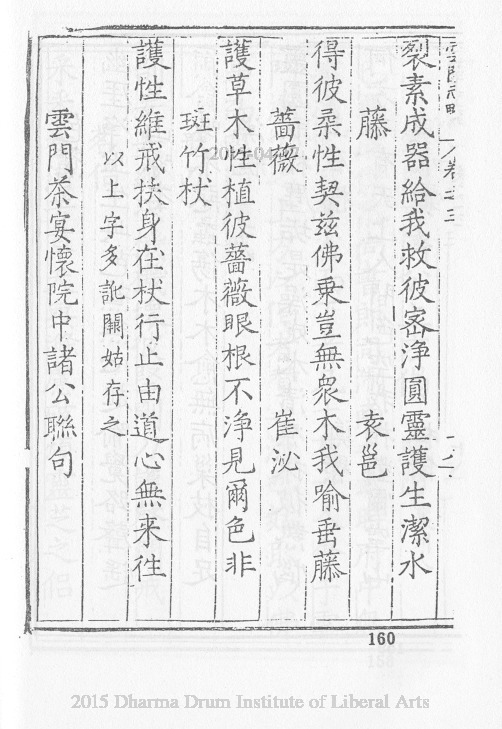 雲門志略 卷之三
裂素成器給我救彼密淨圓靈護生潔水
藤 袁邕
得彼柔性契兹佛乗豈無衆木我喻垂藤
薔薇 崔泌
護草木性植彼薔薇眼根不浄見爾色非
斑竹杖
護性維戒扶身在杖行止由道心無来往
以上字多訛闕姑存之
雲門茶宴懷院中諸公聯句
160
2015 Dharma Drum Institute of Liberal Arts